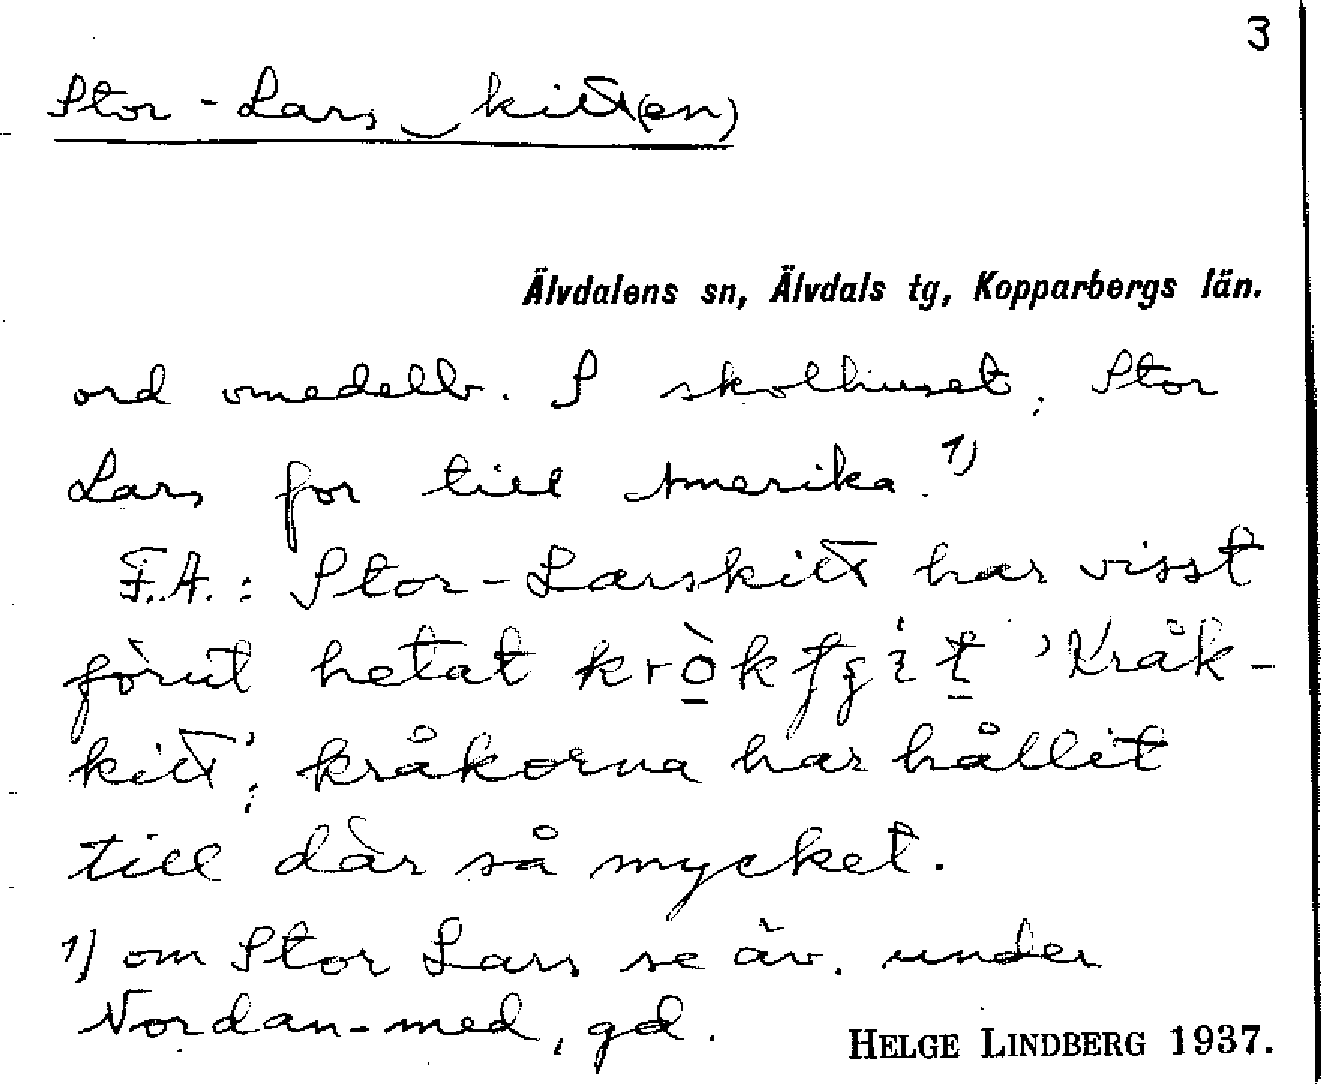 3
Stor-Lars kitt(en)
Älvdalens sn, Älvdals tg, Kopparbergs län.
ord omedelb. S skolhuset; Stor
Lars for till Amerika.1)
F.A.: Stor-Larskitt har visst
förut hetat 'Kråk-
kitt'; kråkorna har hållit
till där så mycket.
1) om Stor Lars se äv. under
Nordan-med, gd.
HELGE LINDBERG 1937.